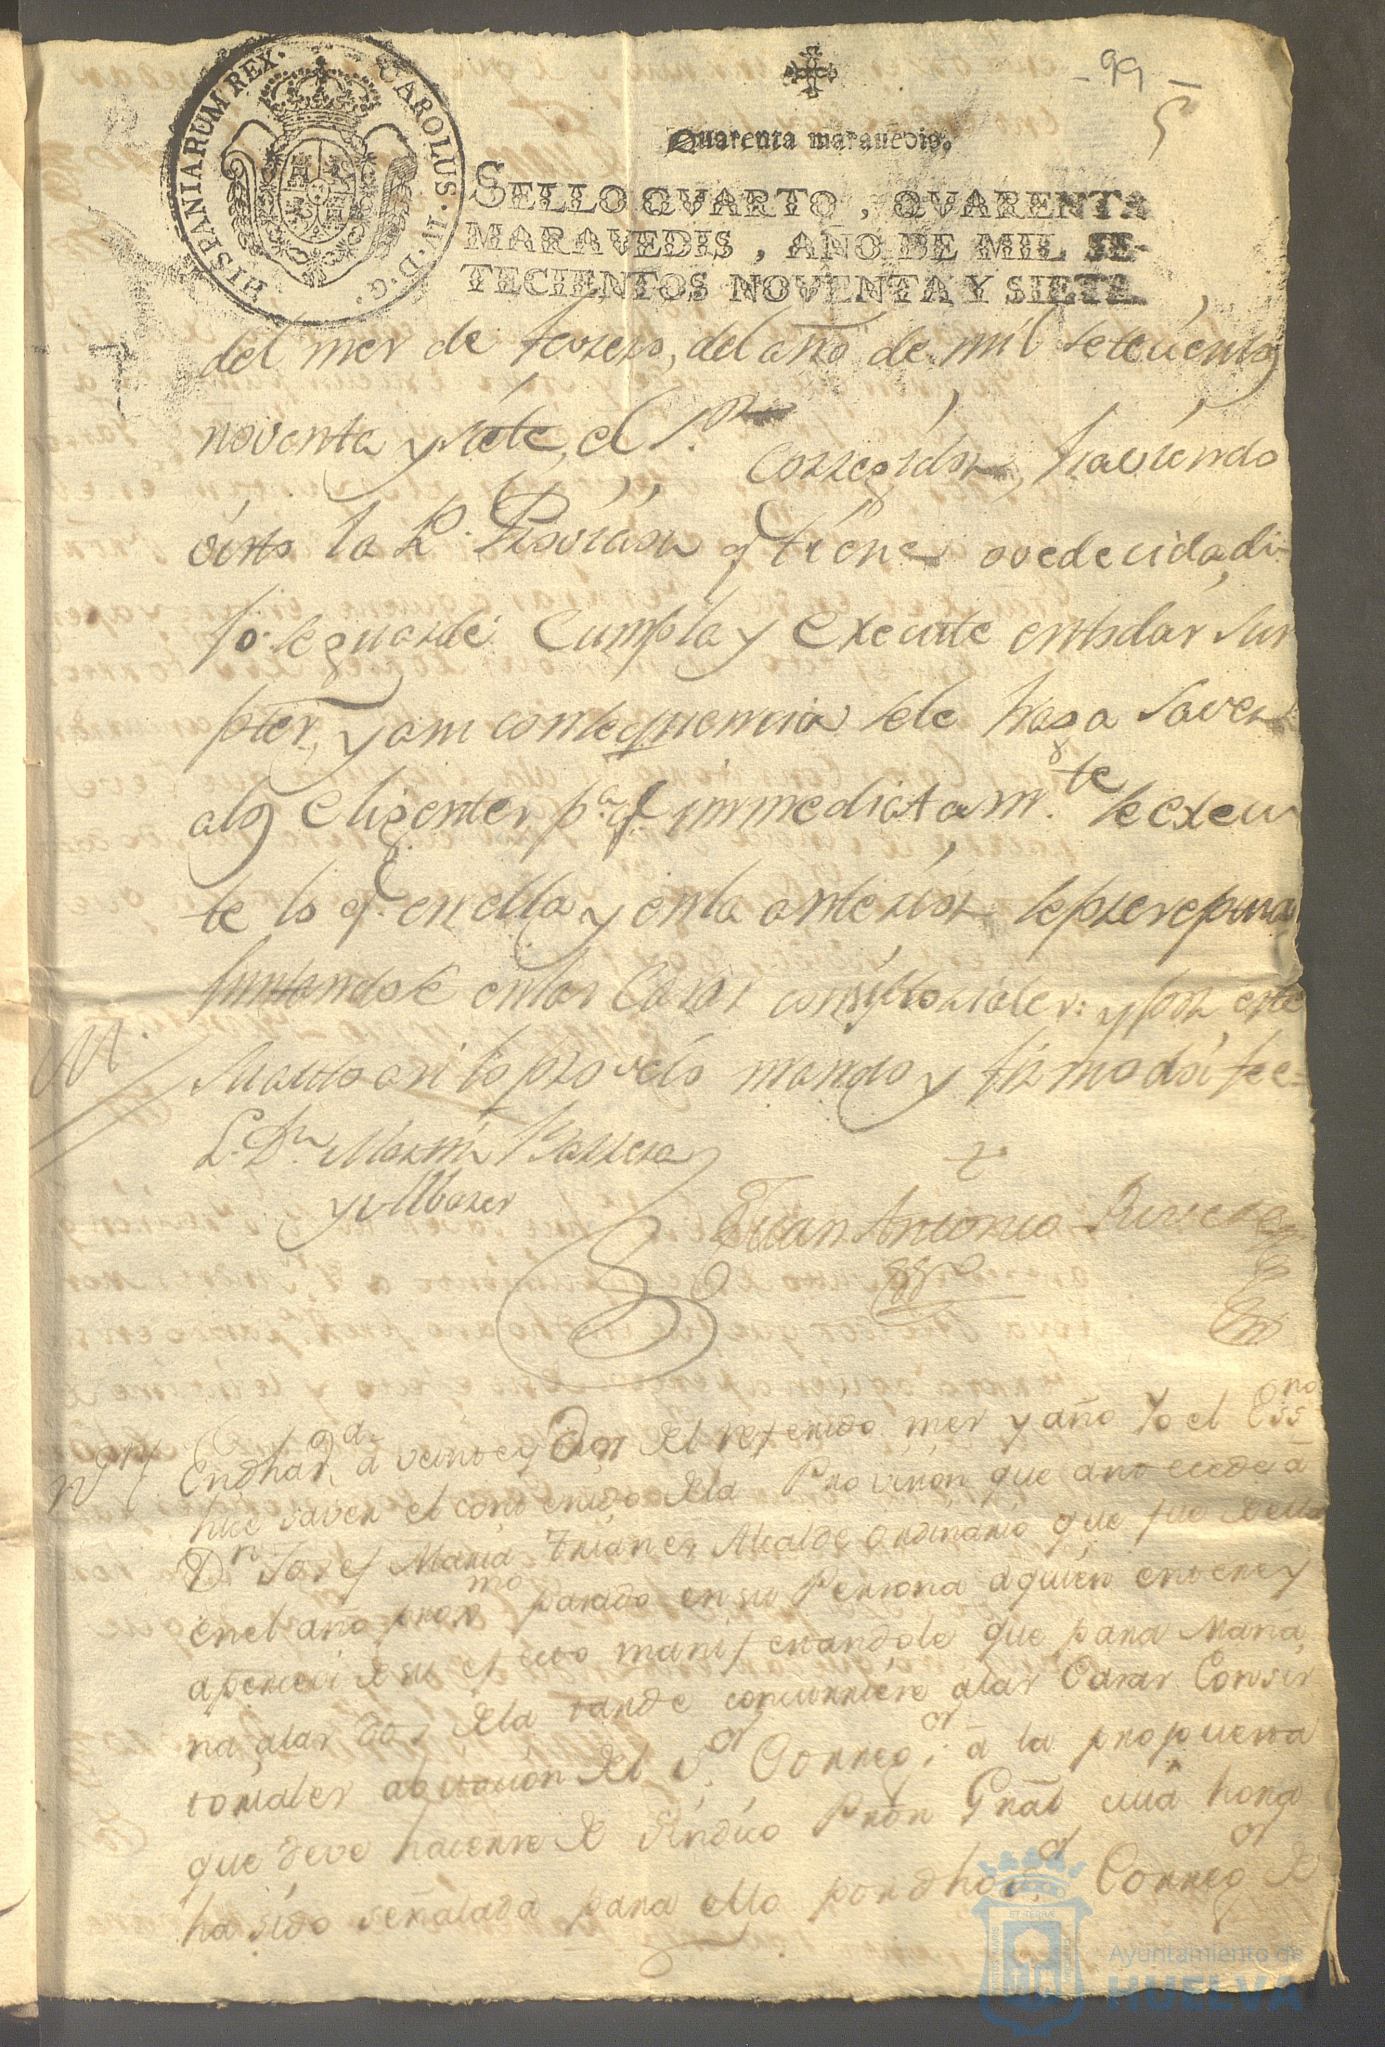 HISPANIARUM REX. CAROLUS. IV. D. G.
- 99 -
5
Quarenta maravedis.
SELLO QVARTO, QVARENTA
MARAVEDIS, AÑO DE MIL SE-
TECIENTOS NOVENTA Y SIETE.
del mes de febrero, del año de mil setecientos
noventa y siete, el S.or Corregidor, haviendo
visto la R. Provision q.e tiene ovedecida, di
jo: se guarde Cumpla y execute entodas sus
ptes, y asu consequencia sele haga saver
alos eligentes p.a q.e inmediatam.te se execu
te lo q.e en ella y enla anterior se
juntandose enlas Casas consistoriales: y por este
suauto asi lo proveio mando y firmo doi fee=
L. Dn Martin Barrera
y Albarez
Juan Antonio Rivera
N.
En dha v.a a veinte y dos del referido mes y año Yo el Ess.no
hice saver el contenido dela Provision que antecede á
Dn Josef Maria Trianes Alcalde ordinario que fue della
enel año prox.mo pasado en su Persona aquien entere y
aperceví de su efecto manifestandole que para Maña
na alas dos dela tarde concurriere alas Casas Consis
toriales a citacion del S.or Correg.or á la propuesta
que deve hacerse de Sindico Pror Gral cuia hora
ha sido señalada para ello por dho S.or Correg.or de
Ayuntamiento de
HUELVA